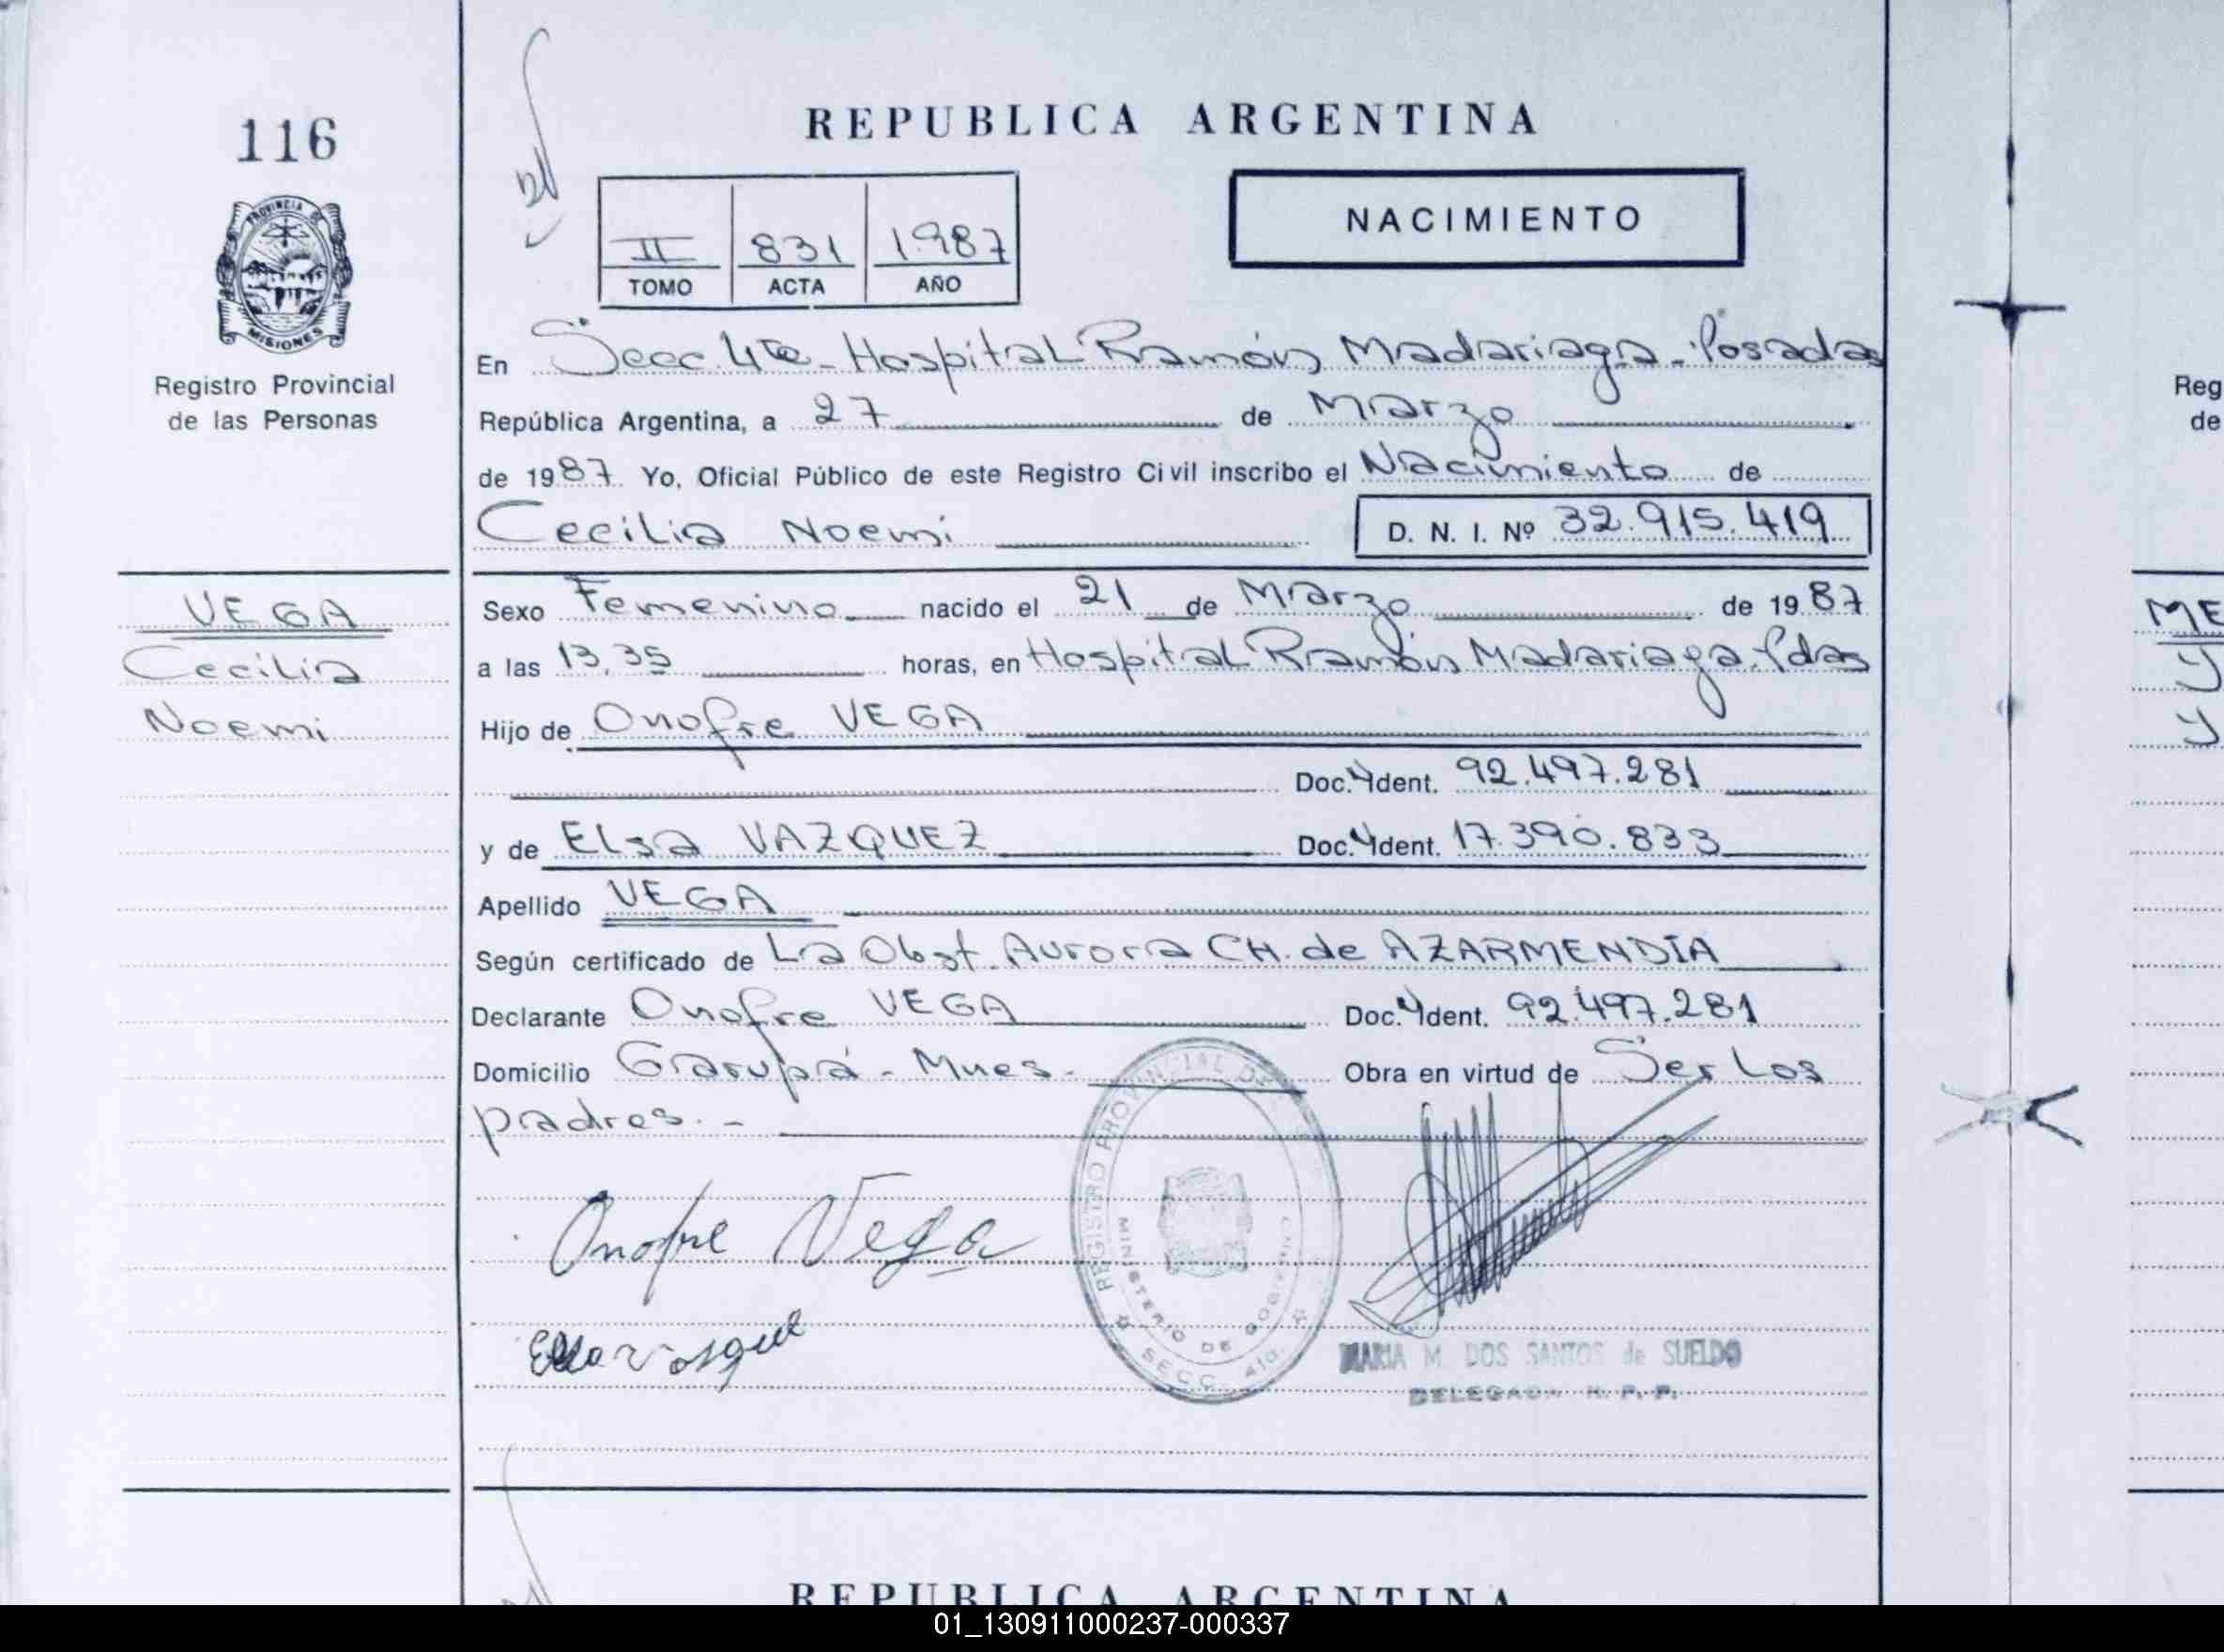 116
REPUBLICA ARGENTINA
NACIMIENTO
II 831 1.987
TOMO ACTA AÑO
PROVINCIA DE
MISIONES
Registro Provincial
de las Personas
En Secc. 4ta - Hospital Ramón Madariaga - Posadas
República Argentina, a 27 de Marzo
de 1987. Yo, Oficial Público de este Registro Civil inscribo el Nacimiento de
Cecilia Noemi D. N. I. Nº 32.915.419
VEGA
Cecilia
Noemi
Sexo Femenino nacido el 21 de Marzo de 1987
a las 13,35 horas, en Hospital Ramón Madariaga - Pdas
Hijo de Onofre VEGA
Doc. Ident. 92.497.281
y de Elsa VAZQUEZ Doc. Ident. 17.390.833
Apellido VEGA
Según certificado de La Obst. Aurora CH. de AZARMENDIA
Declarante Onofre VEGA Doc. Ident. 92.497.281
Domicilio Garupá - Mnes. Obra en virtud de Ser Los
padres. -
Onofre Vega
REGISTRO PROVINCIAL DE
MINISTERIO DE GOBIERNO
SECC. 4ta.
MARIA M. DOS SANTOS de SUELDO
DELEGADA R. P. P.
REPUBLICA ARGENTINA
Reg
de
ME
01_130911000237-000337